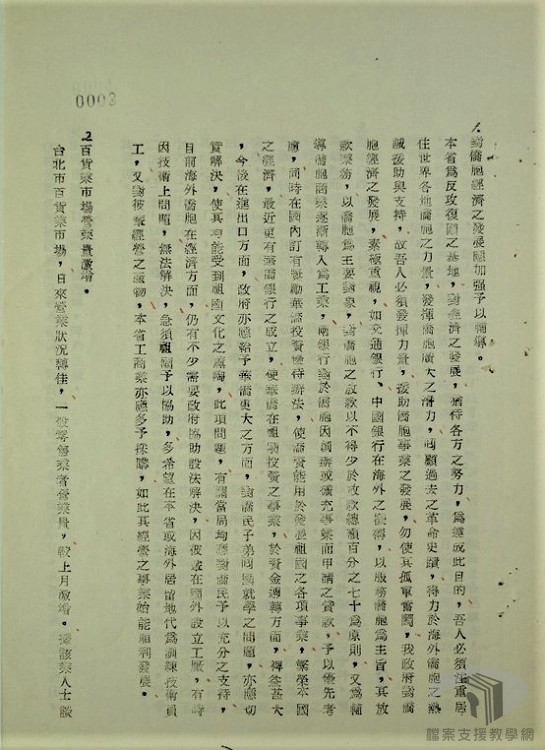 0003
1.對僑胞經濟之發展應加强予以輔導。
本省爲反攻復國之基地,對經濟之發展,猶待各方之努力,爲達成此目的,吾人必須注重居
住世界各地僑胞之力量,發揮僑胞廣大之潛力,回顧過去之革命史蹟,得力於海外僑胞之熱
誠援助與支持,故吾人必須發揮力量,援助僑胞事業之發展,勿使其孤軍奮鬪,我政府對僑
胞經濟之發展,素極重視,如交通銀行、中國銀行在海外之業務,以服務僑胞爲主旨,其放
款業務,以僑胞爲主要對象,對僑胞之放款以不得少於放款總額百分之七十爲原則,又爲輔
導僑胞商業逐漸轉入爲工業,兩銀行對於僑胞因創辦或擴充事業而申請之貸款,予以優先考
慮,同時在國內訂有鼓勵華僑投資優待辦法,使僑資能用於發展祖國之各項事業,繁榮本國
之經濟,最近更有華僑銀行之成立,使華僑在祖國投資之事業,於資金週轉方面,裨益甚大
,今後在進出口方面,政府亦應給予華僑更大之方面,對僑民子弟回國就學之問題,亦應切
實解決,使其均能受到祖國文化之薰陶,此項問題,有關當局均應對僑民予以充分之支持,
目前海外僑胞在經濟方面,仍有不少需要政府協助設法解決,因彼等在國外設立工廠,有時
因技術上問題,無法解決,急須祖國予以協助,多希望在本省或海外居留地代爲訓練技術員
工,又對彼等經營之產物,本省工商業亦應多予採購,如此其經營之事業始能順利發展。
2.百貨業市場營業量激增。
台北市百貨業市場,日來營業狀況轉佳,一般零售業者營業量,較上月激增。據該業人士談
檔案支援教學網